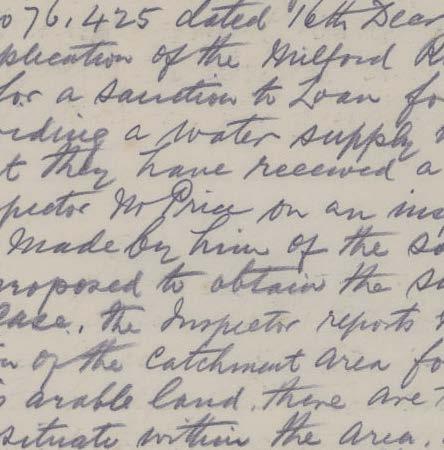 o 76,425 dated 16th Decr
plication of the Milford R
for a sanction to Loan fo
viding a water supply
t they have received a
spector Mr Price on an ins
made by him of the so
proposed to obtain the su
case. The Inspector reports
in of the catchment area fo
s arable land. there are
situate within the area.